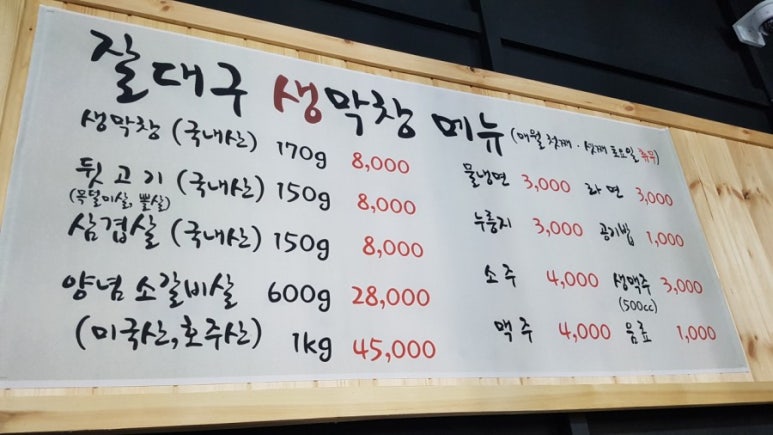 잘대구 생막창 메뉴 (매월 첫째·셋째 토요일 휴무)
생막창 (국내산) 170g 8,000
뒷고기 (국내산) 150g 8,000
(목덜미살, 뽈살)
삼겹살 (국내산) 150g 8,000
양념 소갈비살 600g 28,000
(미국산, 호주산) 1kg 45,000
물냉면 3,000 라면 3,000
누룽지 3,000 공기밥 1,000
소주 4,000 생맥주 3,000
(500cc)
맥주 4,000 음료 1,000